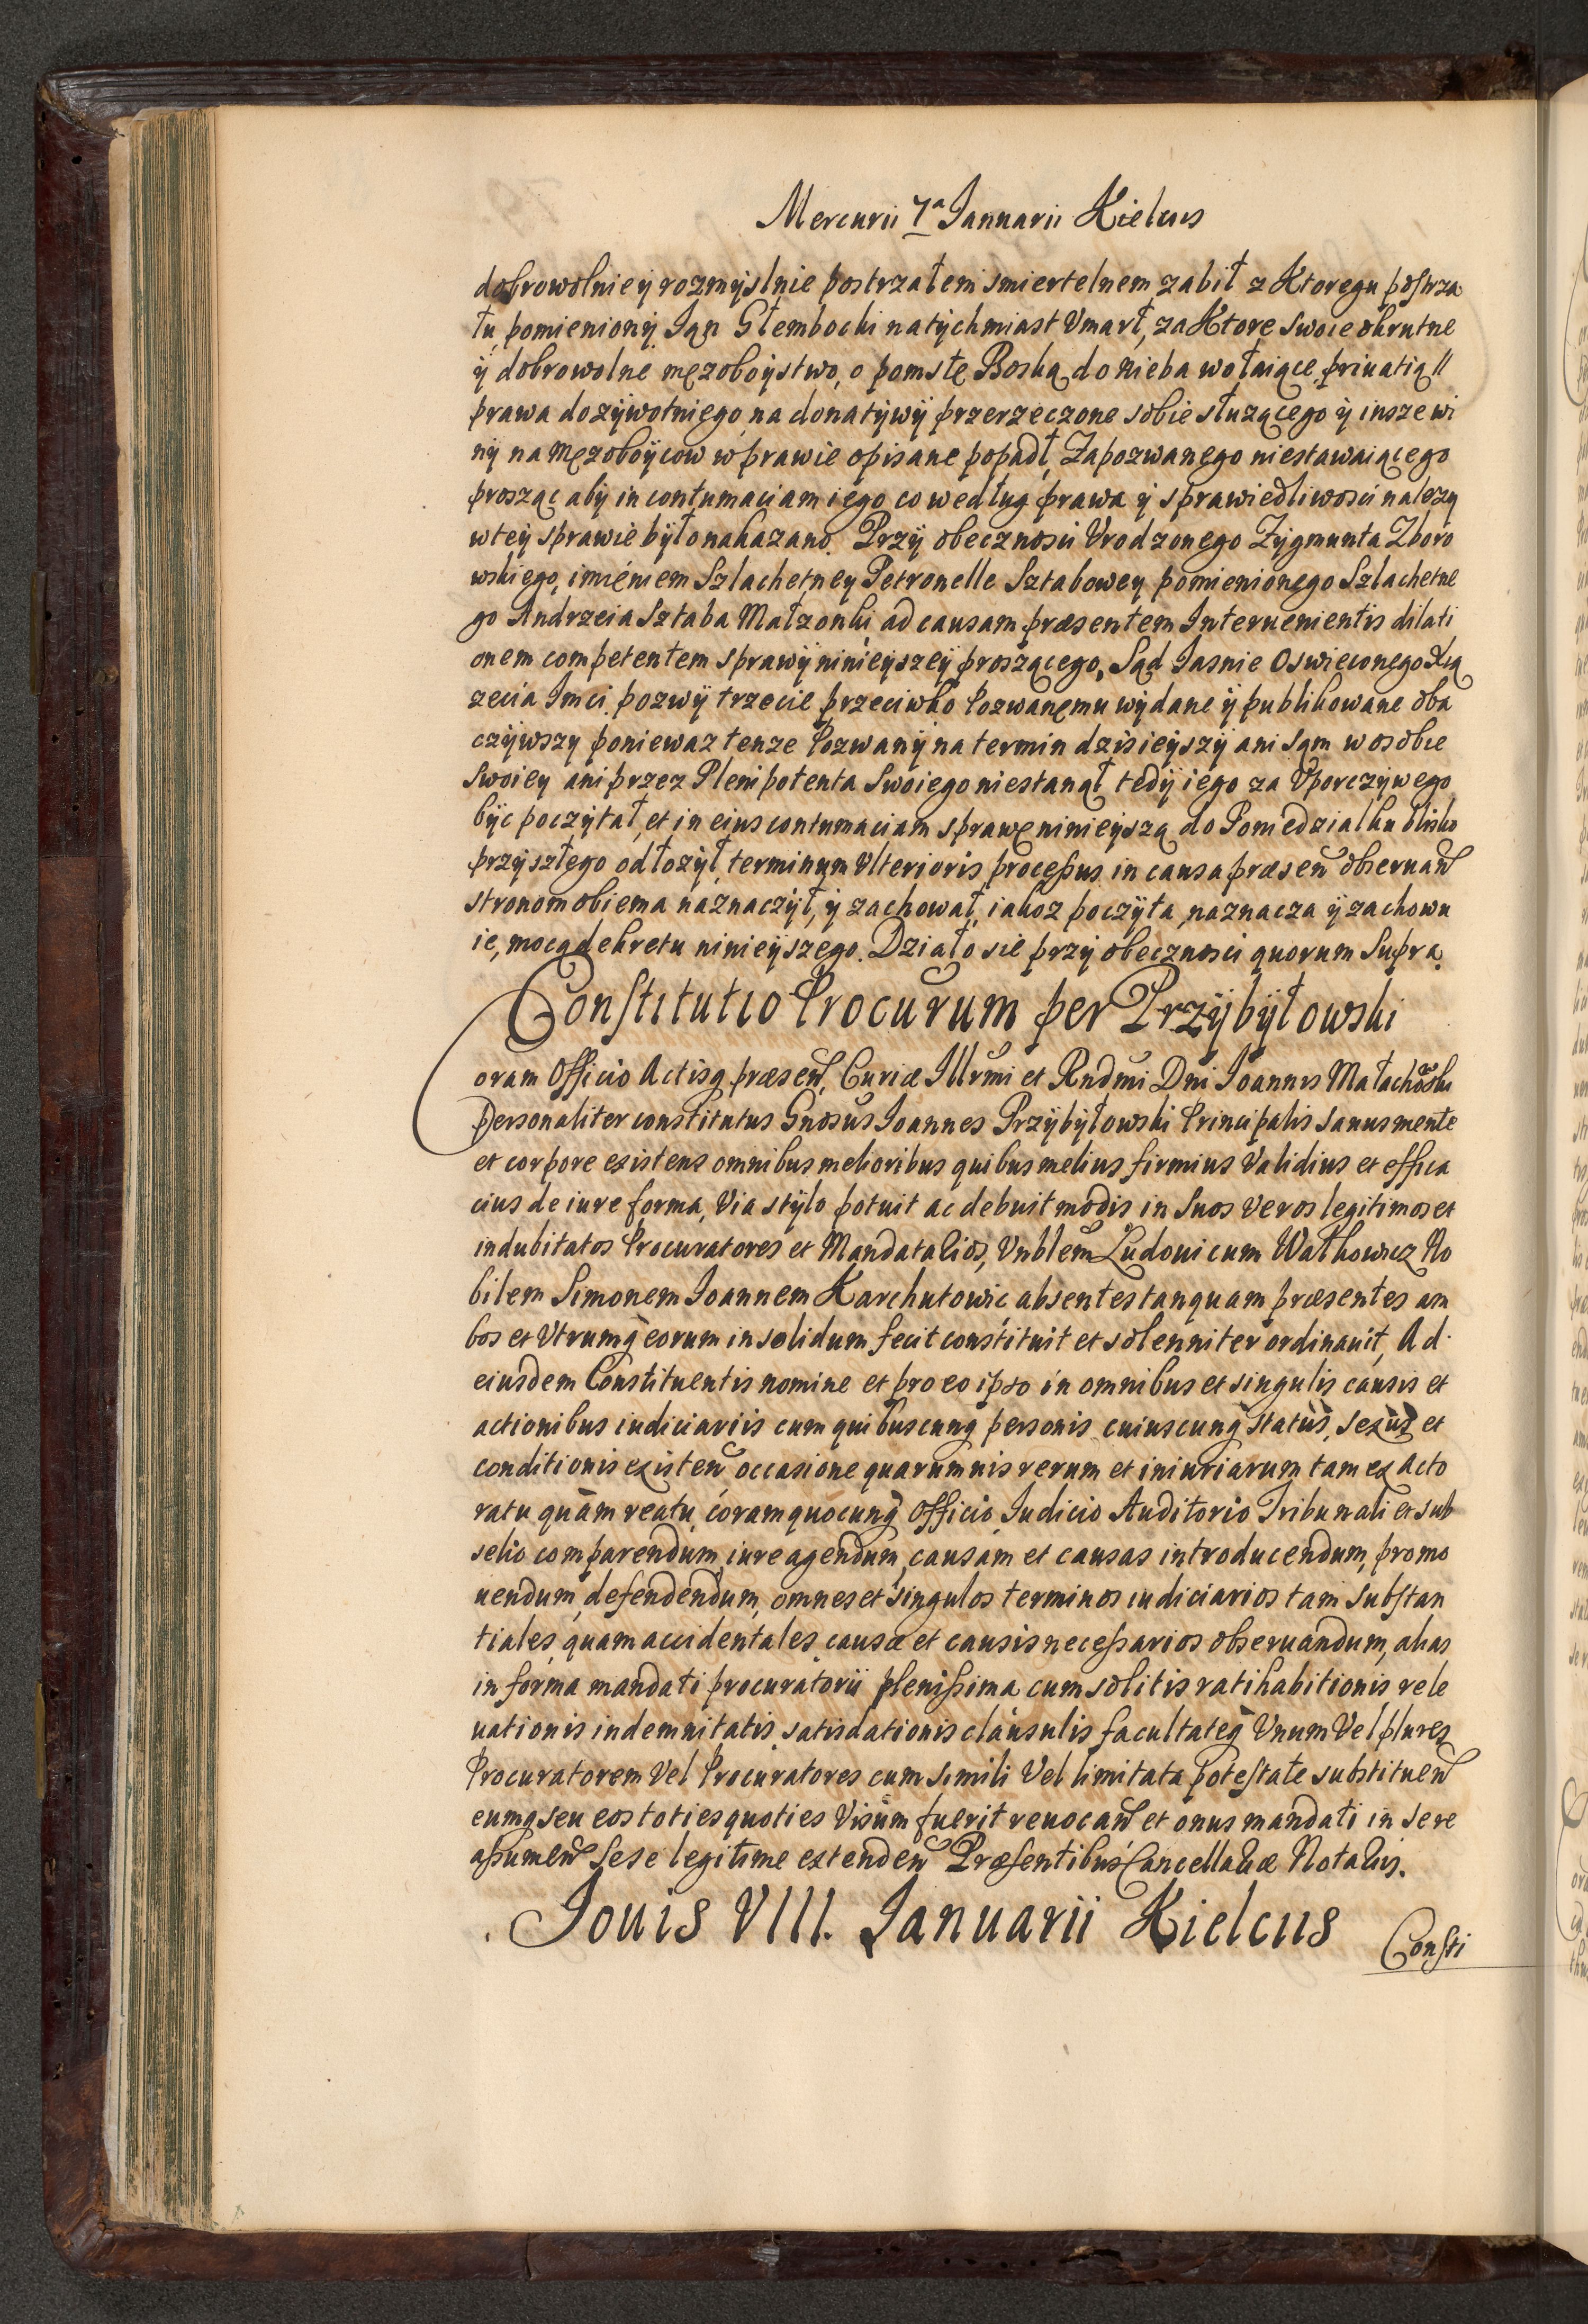 Mercurii 7ª Januarii Kielciis
dobrowolnie ÿ rozmÿslnie postrzałem smiertelnem zabił z Ktoregu postrza
łu, pomienionÿ Ian Głembocki natÿchmiast Vmarł, za Ktore swoie okrutne
ÿ dobrowolne męzoboÿstwo, o pomstę Boską do nieba wołaiące, priuatią //
prawa dozÿwotniego, na donatÿwÿ przerzeczone sobie słuzącego ÿ insze wi
nÿ na Męzoboÿcow w prawie opisane popadł, Zapozwanego niestawaiącego
prosząc abÿ in contumaciam iego co według prawa ÿ sprawiedliwosci nalezy
w teÿ sprawie bÿło nakazano. Przÿ obecznosci Vrodzonego Zÿgmunta Zboro
wskiego, imieniem Szlachetneÿ Petronelle Sztaboweÿ pomienionego Szlachetne
go Andrzeia Sztaba Małzonki, ad causam præsentem Interuenientis dilati
onem competentem sprawÿ ninieÿszeÿ proszącego, Sąd Iasnie Oswieconego Xią
zecia Imci pozwÿ trzecie przeciwko Pozwanemu wÿdane ÿ publikowane oba
czÿwszy poniewaz tenze Pozwanÿ na termin dzisieÿszÿ ani sąm w osobie
Swoieÿ ani przez Plenipotenta Swoiego niestanął tedÿ iego za Vporczÿwego
bÿc poczÿtał, et in eius contumaciam sprawę ninieÿszą do Poniedziałku blisko
przÿszłego odłozÿł, terminum Vlterioris processus in causa præsen obseruan
stronom obiema naznaczÿł, ÿ zachował, iakoz poczÿta, naznacza ÿ zachowu
ie, mocą dekretu ninieÿszego. Działo sie przÿ obecznosci quorum Supra
Constitutio Procurum per Przÿbÿłowski
oram Officio Actisq præsen, Curiæ Illrmi et Rndmi Dni Ioannis Małachowski
Personaliter constitutus Gnosus Ioannes Przÿbÿłowski Principalis sanus mente
et corpore existens omnibus melioribus quibus melius firmius Validius et effica
cius de iure forma, Via stÿlo potuit ac debuit modis in Suos Veros legitimos et
indubitatos Procuratores et Mandatarios, Vnblem Ludouicum Wałkowicz No
bilem Simonem Ioannem Karchutowic absentes tanquam præsentes am
bos et Vtrumq eorum in solidum fecit constituit et solenniter ordinauit, Ad
eiusdem Constituentis nomine et pro eo ipso in omnibus et singulis causis et
actionibus iudiciariis cum quibuscunq personis cuiuscunq status, sexus et
conditionis existen occasione quarumuis rerum et iniuriarum tam ex acto
ratu quam reatu, coram quocunq Officio Iudicio Auditorio Tribunali et sub
selio comparendum, iure agendum, causam et causas introducendum, promo
uendum, defendendum, omnes et singulos terminos iudiciarios tam Substan
tiales, quam accidentales, causæ et causis necessarios obseruandum, alias
in forma mandati procuratorii plenissima cum solitis ratihabitionis, rele
uationis indemnitatis, satisdationis clausulis facultateq Vnum Vel plures
Procuratorem Vel Procuratores cum simili Vel limitata potestate substituen
eumq seu eos toties quoties Visum fuerit reuocan et onus mandati in se re
assumen Sese legitime extenden Præsentibus Cancellariæ Notariis.
Jouis VIII. Ianuarii Kielciis
Consti